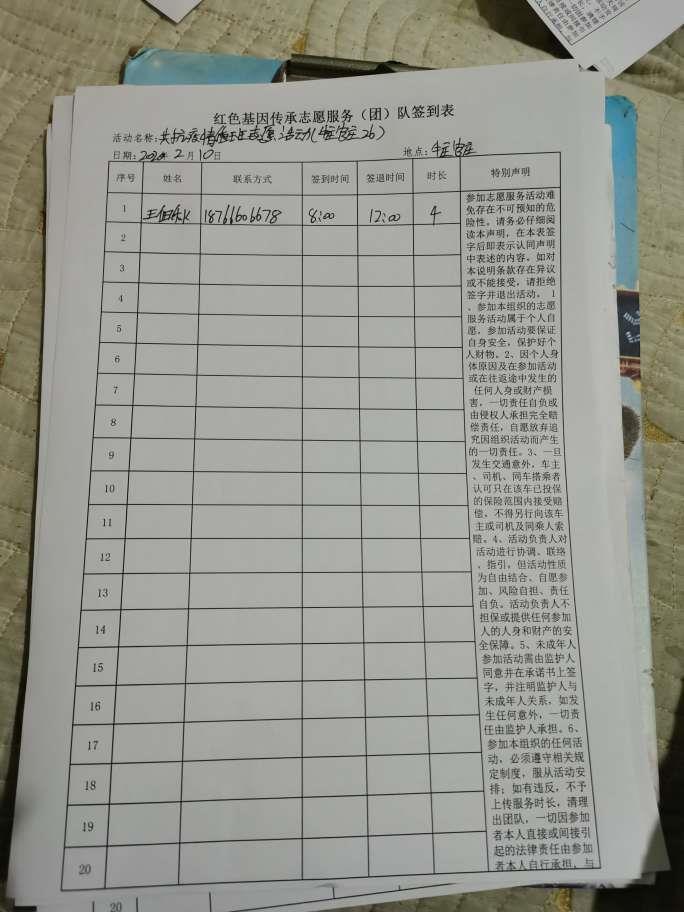 红色基因传承志愿服务（团）队签到表
活动名称：共抗疫情值班志愿活动（26）
日期：2020年2月10日
地点：
序号 姓名 联系方式 签到时间 签退时间 时长 特别声明
1 18766606678 8:00 12:00 4
2
3
4
5
6
7
8
9
10
11
12
13
14
15
16
17
18
19
20
参加志愿服务活动难
免存在不可预知的危
险性。请务必仔细阅
读本声明，在本表签
字后即表示认同声明
中表述的内容。如对
本说明条款存在异议
或不能接受，请拒绝
签字并退出活动。 1
、参加本组织的志愿
服务活动属于个人自
愿。参加活动要保证
自身安全，保护好个
人财物。2、因个人身
体原因及在参加活动
或在往返途中发生的
任何人身或财产损
害，一切责任自负或
由侵权人承担完全赔
偿责任，自愿放弃追
究因组织活动而产生
的一切责任。3、一旦
发生交通意外，车主
、司机、同车搭乘者
认可只在该车已投保
的保险范围内接受赔
偿，不得另行向该车
主或司机及同乘人索
赔。4、活动负责人对
活动进行协调、联络
、指引，但活动性质
为自由结合、自愿参
加、风险自担、责任
自负。活动负责人不
担保或提供任何参加
人的人身和财产的安
全保障。5、未成年人
参加活动需由监护人
同意并在承诺书上签
字，并注明监护人与
未成年人关系，如发
生任何意外，一切责
任由监护人承担。6、
参加本组织的任何活
动，必须遵守相关规
定制度，服从活动安
排；如有违反，不予
上传服务时长，清理
出团队，一切因参加
者本人直接或间接引
起的法律责任由参加
者本人自行承担，与
20